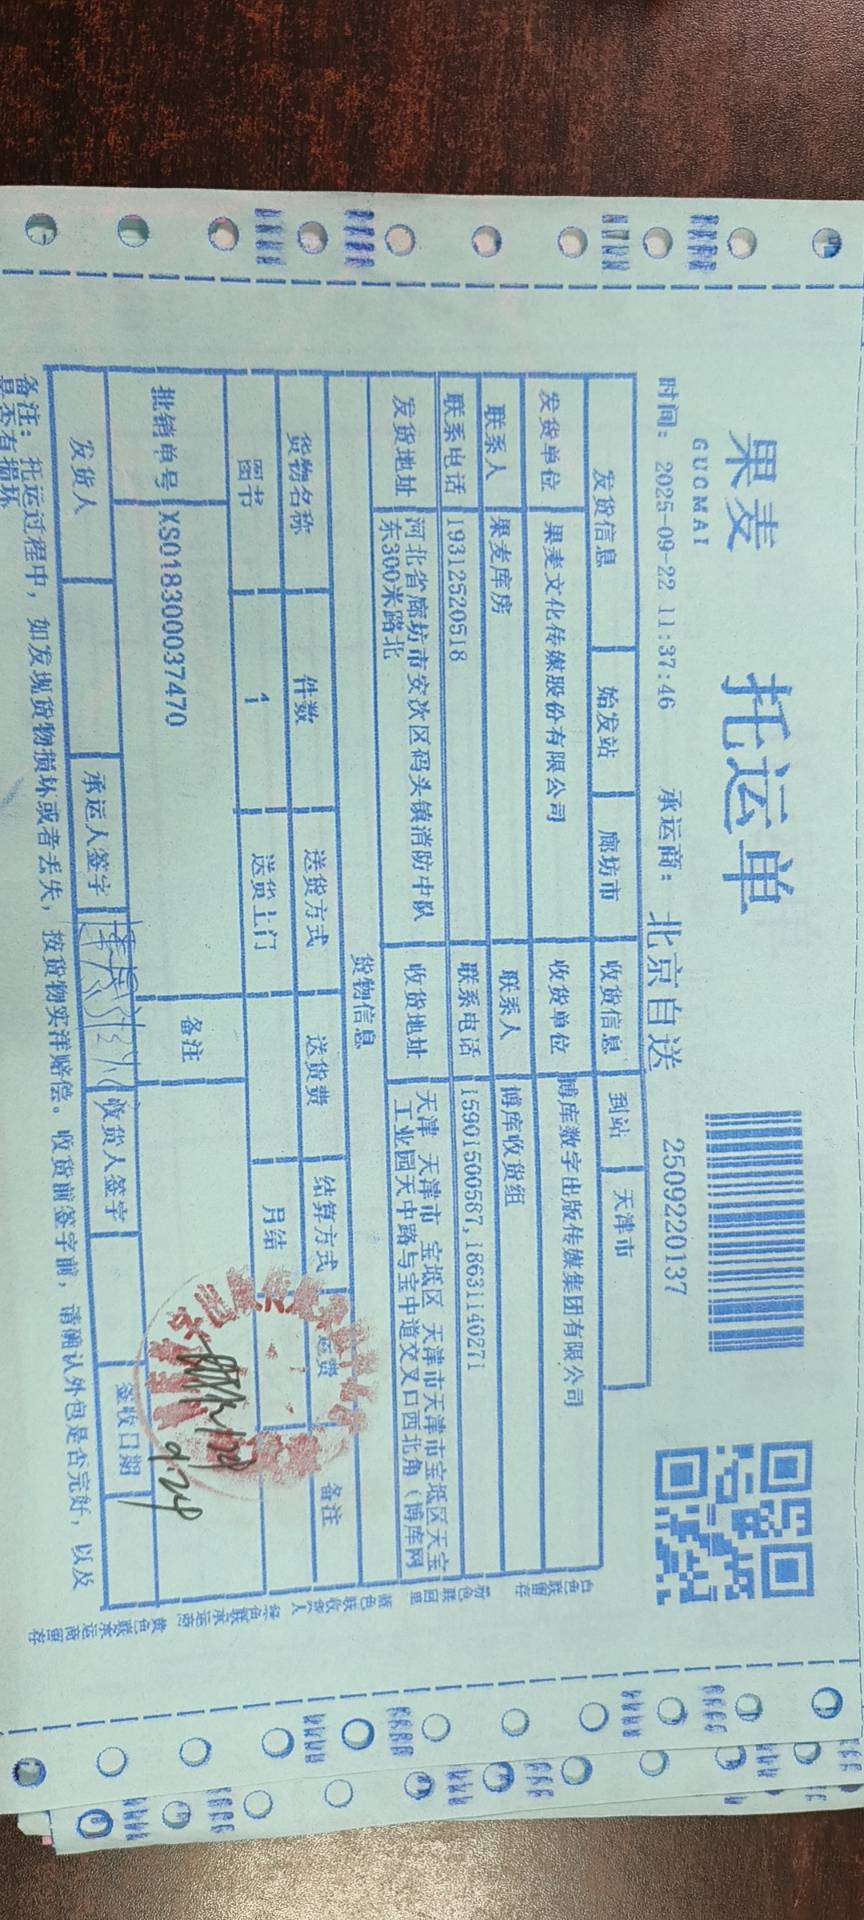 果麦
GUOMAI
托运单
时间: 2025-09-22 11:37:46 承运商: 北京自送 2509220137
发货信息 始发站 廊坊市 收货信息 到站 天津市
发货单位 果麦文化传媒股份有限公司 收货单位 博库数字出版传媒集团有限公司
联系人 果麦库房 联系人 博库收货组
联系电话 19312520518 联系电话 15901500587,18631140271
发货地址 河北省廊坊市安次区码头镇消防中队东300米路北 收货地址 天津 天津市 宝坻区 天津市天津市宝坻区天宝工业园天中路与宝中道交叉口西北角(博库网
货物信息
货物名称 件数 送货方式 送货费 结算方式 运费 备注
图书 1 送货上门 月结
批销单号 XS018300037470 备注
发货人 承运人签字 收货人签字 签收日期
9.24
备注: 托运过程中, 如发现货物损坏或者丢失, 按货物实洋赔偿。收货前签字前, 请确认外包是否完好, 以及
是否有损坏
白色联留存
粉色联回单
蓝色联收货人
绿色联承运商
黄色联承运商留存